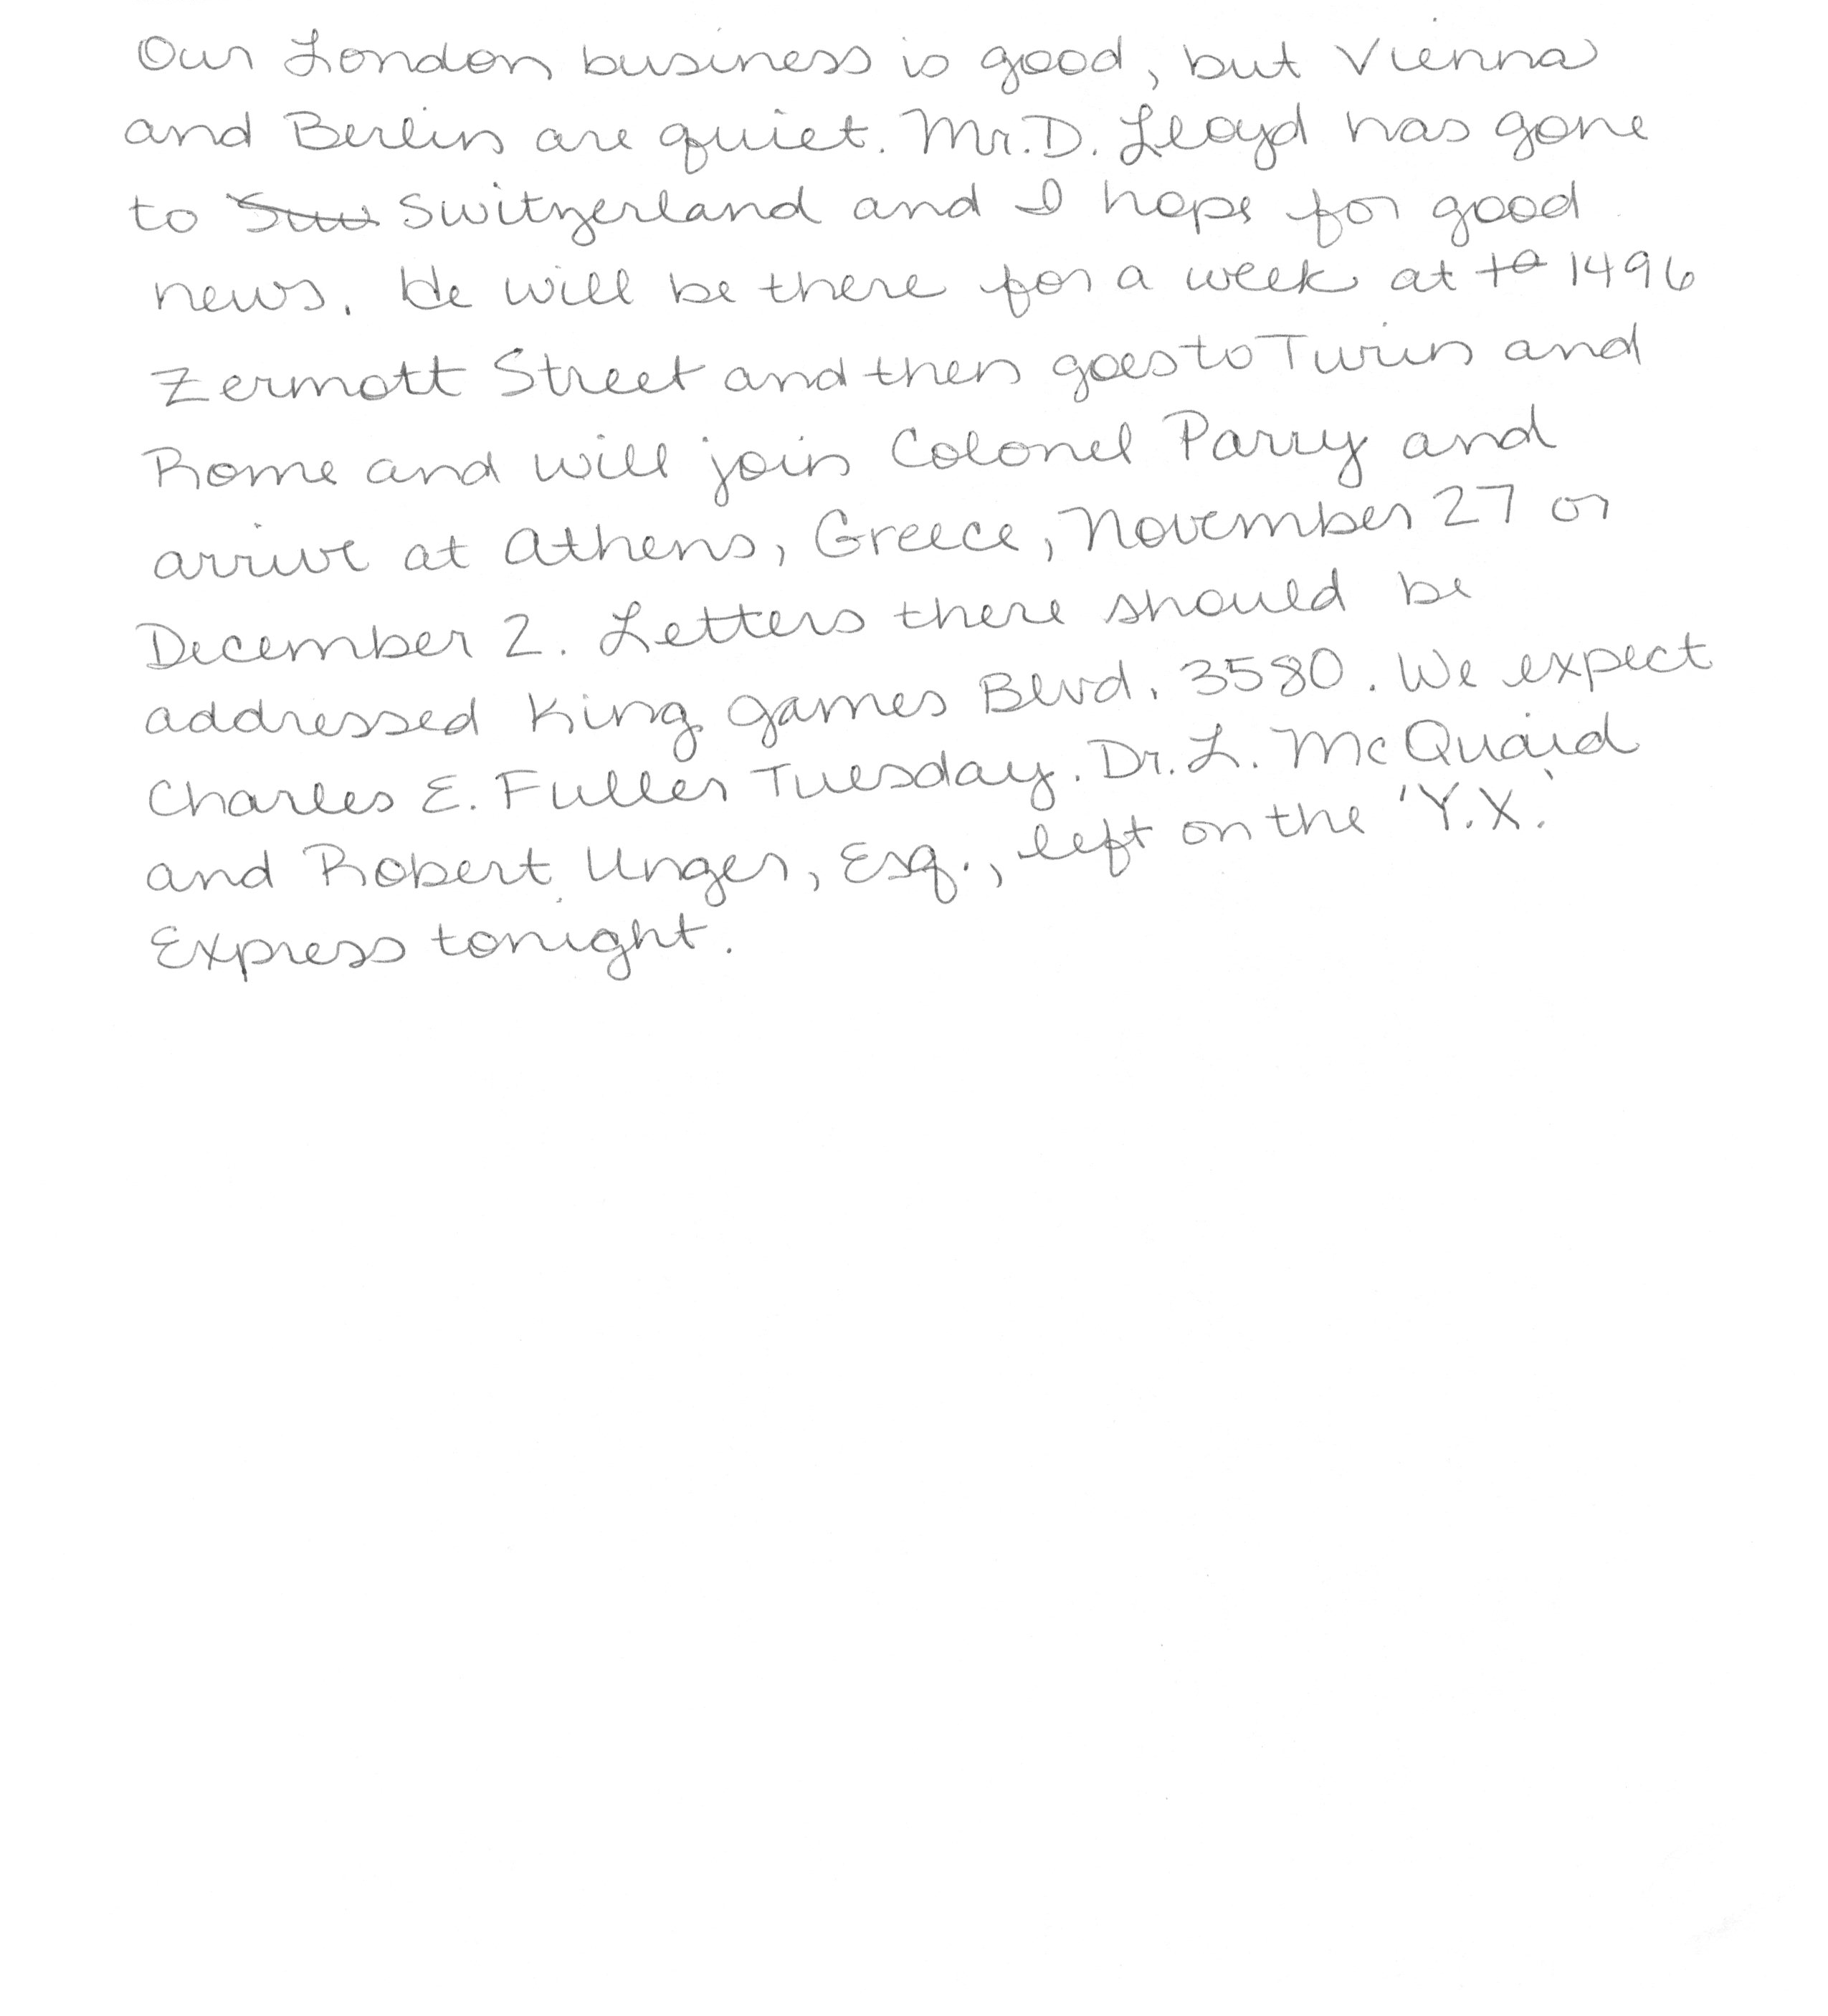 Our London business is good, but Vienna
and Berlin are quiet. Mr. D. Lloyd has gone
to Switzerland and I hope for good
news. He will be there for a week at to 1496
Zermott Street and then goes to Turin and
Rome and will join Colonel Parry and
arrive at Athens, Greece, November 27 or
December 2. Letters there should be
addressed King games Blvd. 3580. We expect
Charles E. Fuller Tuesday. Dr. L. McQuaid
and Robert Unger, Esq., left on the 'Y.X.'
Express tonight.